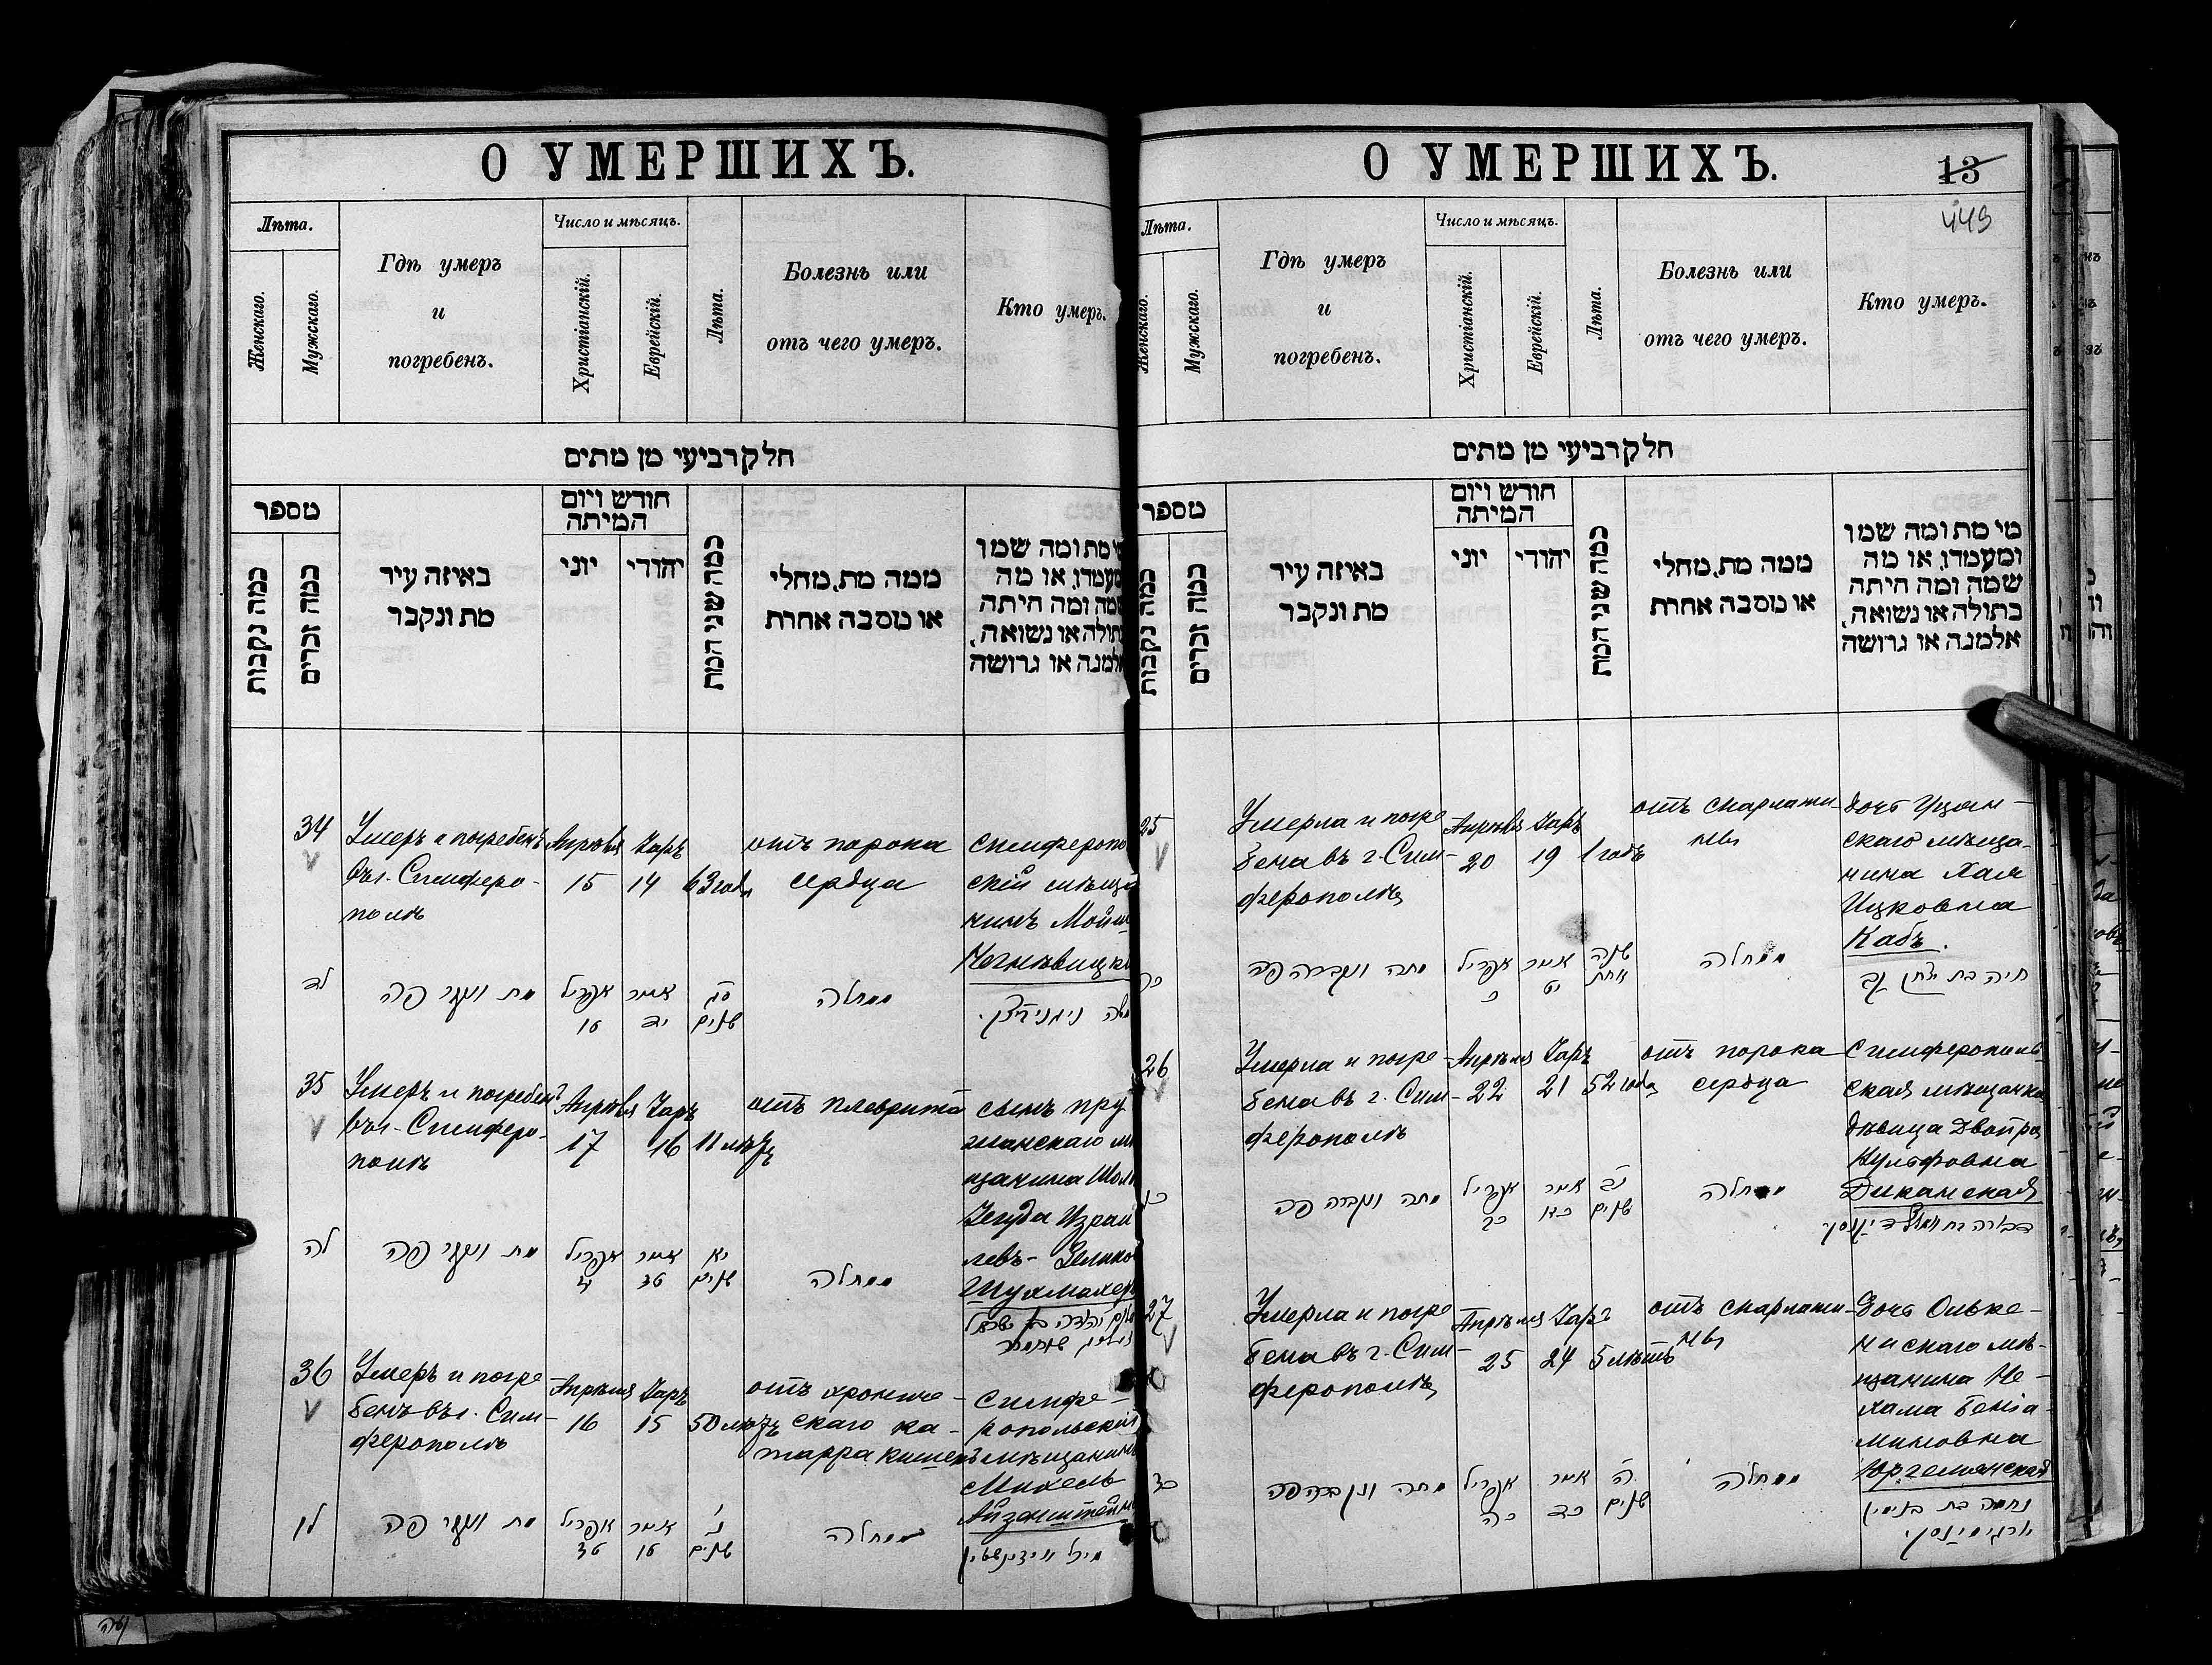 О УМЕРШИХЪ.
Лѣта.
Женскаго.
Мужскаго.
Гдѣ умеръ
и
погребенъ.
Число и мѣсяцъ.
Христіанскій.
Еврейскій.
Лѣта.
Болезнь или
отъ чего умеръ.
Кто умеръ.
חלק רביעי מן מתים
מספר
כמה נקבות
כמה זכרים
באיזה עיר
מת ונקבר
חודש ויום
המיתה
יוני
יהודי
כמה שני המת
ממה מת, מחלי
או מסבה אחרת
מי מת ומה שמו
ומעמדו, או מה
שמה ומה היתה
בתולה או נשואה,
אלמנה או גרושה
34
Умеръ и погребенъ
въ г. Симферо-
полѣ
Апрѣля
15
Іаръ
14
63 года
отъ порока
сердца
Симферопо
скій мѣща
нинъ
לד
מת ונקבר פה
אפריל
טו
אייר
יד
סג
שנים
ממחלה
משה
35
Умеръ и погребенъ
въ г. Симферо-
полѣ
Апрѣля
17
Іаръ
16
11 лѣтъ
отъ плеврита
сынъ пру
жанскаго мѣ
щанина
Іегуда Израи
левъ-
Шухмахеръ
לה
מת ונקבר פה
אפריל
אייר
טז
יא
שנים
ממחלה
36
Умеръ и погре
бенъ въ г. Сим-
ферополѣ
Апрѣля
16
Іаръ
15
50 лѣтъ
отъ хрониче-
скаго ка-
тарра кишекъ
Симфе-
ропольскій
мѣщанинъ
Михель
Айзенштейнъ
לו
מת ונקבר פה
אפריל
טז
אייר
טו
נ
שנים
ממחלה
О УМЕРШИХЪ.
13
449
Лѣта.
Женскаго.
Мужскаго.
Гдѣ умеръ
и
погребенъ.
Число и мѣсяцъ.
Христіанскій.
Еврейскій.
Лѣта.
Болезнь или
отъ чего умеръ.
Кто умеръ.
חלק רביעי מן מתים
מספר
כמה נקבות
כמה זכרים
באיזה עיר
מת ונקבר
חודש ויום
המיתה
יוני
יהודי
כמה שני המת
ממה מת, מחלי
או מסבה אחרת
מי מת ומה שמו
ומעמדו, או מה
שמה ומה היתה
בתולה או נשואה,
אלמנה או גרושה
25
Умерла и погре
бена въ г. Сим-
ферополѣ
Апрѣля
20
Іаръ
19
1 годъ
отъ скарлати-
ны
дочь
скаго мѣща-
нина Хая
Ицковна
Кабъ.
כה
מתה ונקברה פה
אפריל
כ
אייר
יט
שנה
אחת
ממחלה
חיה בת יצחק קב
26
Умерла и погре-
бена въ г. Сим-
ферополѣ
Апрѣля
22
Іаръ
21
52 года
отъ порока
сердца
Симферополь-
ская мѣщанка
дѣвица Двойра
Вульфовна
Диканская
כו
מתה ונקברה פה
אפריל
כב
אייר
כא
נב
שנים
ממחלה
27
Умерла и погре
бена въ г. Сим-
ферополѣ
Апрѣля
25
Іаръ
24
5 лѣтъ
отъ скарлати-
ны
Дочь Олькe-
никскаго мѣ-
щанина Не-
хама Беніа-
миновна
כז
מתה ונקברה פה
אפריל
כה
אייר
כד
ה
שנים
ממחלה
נחמה בת בנימין